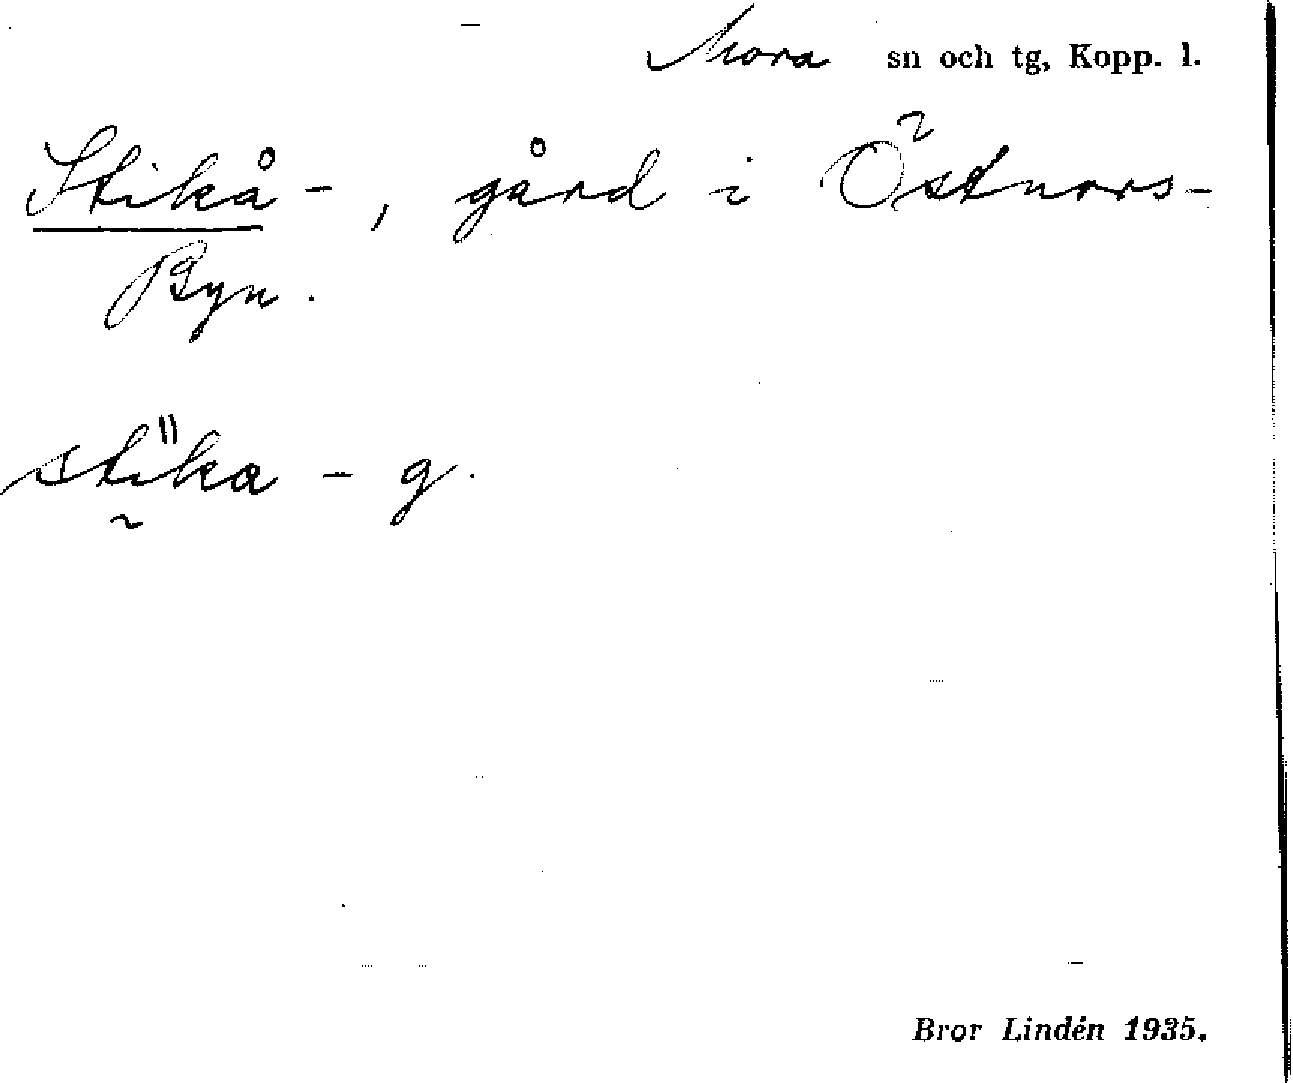 Mora sn och tg, Kopp. l.
Stikå-, gård i Östnors-
Byn.
stika - g.
Bror Lindén 1935.